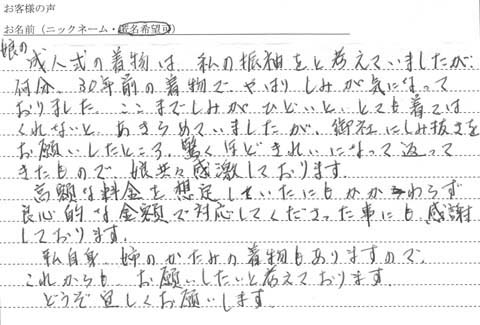 お客様の声
お名前(ニックネーム・匿名希望可)
娘の
成人式の着物は、私の振袖をと考えていましたが、
何分、30年前の着物で、やはりしみが気になって
おりました。ここまでしみがひどいと、とても着ては
くれないと、あきらめていましたが、御社にしみ抜きを
お願いしたところ、驚くほどきれいになって返って
きたもので、娘共々感激しております。
高額な料金を想定していたにもかかわらず
良心的な金額で対応してくださった事にも感謝
しております。
私自身、姉のかたみの着物もありますので、
これからも、お願いしたいと考えております。
どうぞ宜しくお願いします。